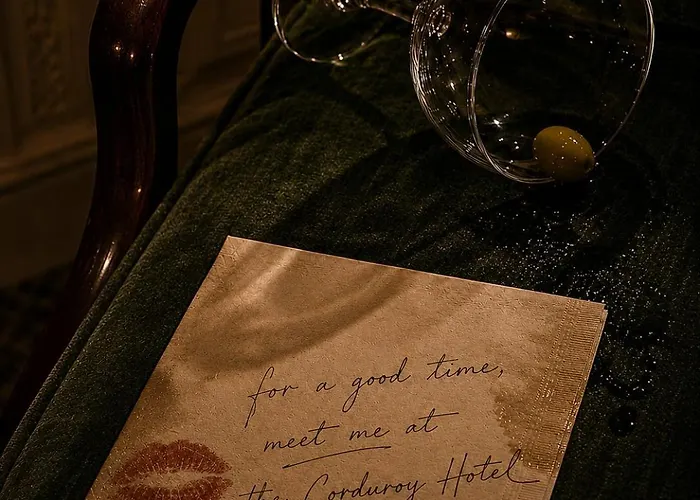 for a good time,
meet me at
the Corduroy Hotel